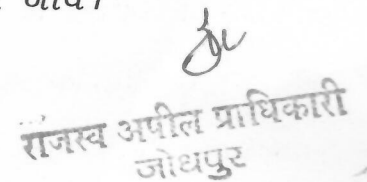 जावे।
राजस्व अपील प्राधिकारी
जोधपुर